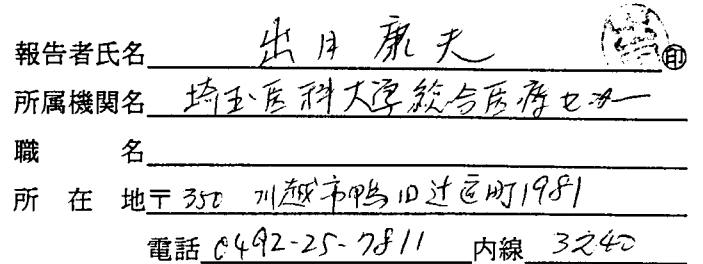 報告者氏名 出月康夫 ㊞
所属機関名 埼玉医科大学総合医療センター
職 名
所 在 地 〒350 川越市鴨田辻道町1981
電話 0492-25-7811 内線 3240